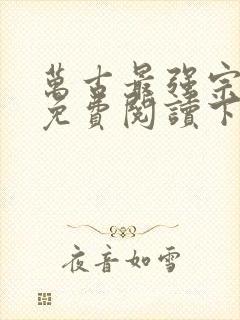 萬古最强宗
免費閱讀下
夜音如雪